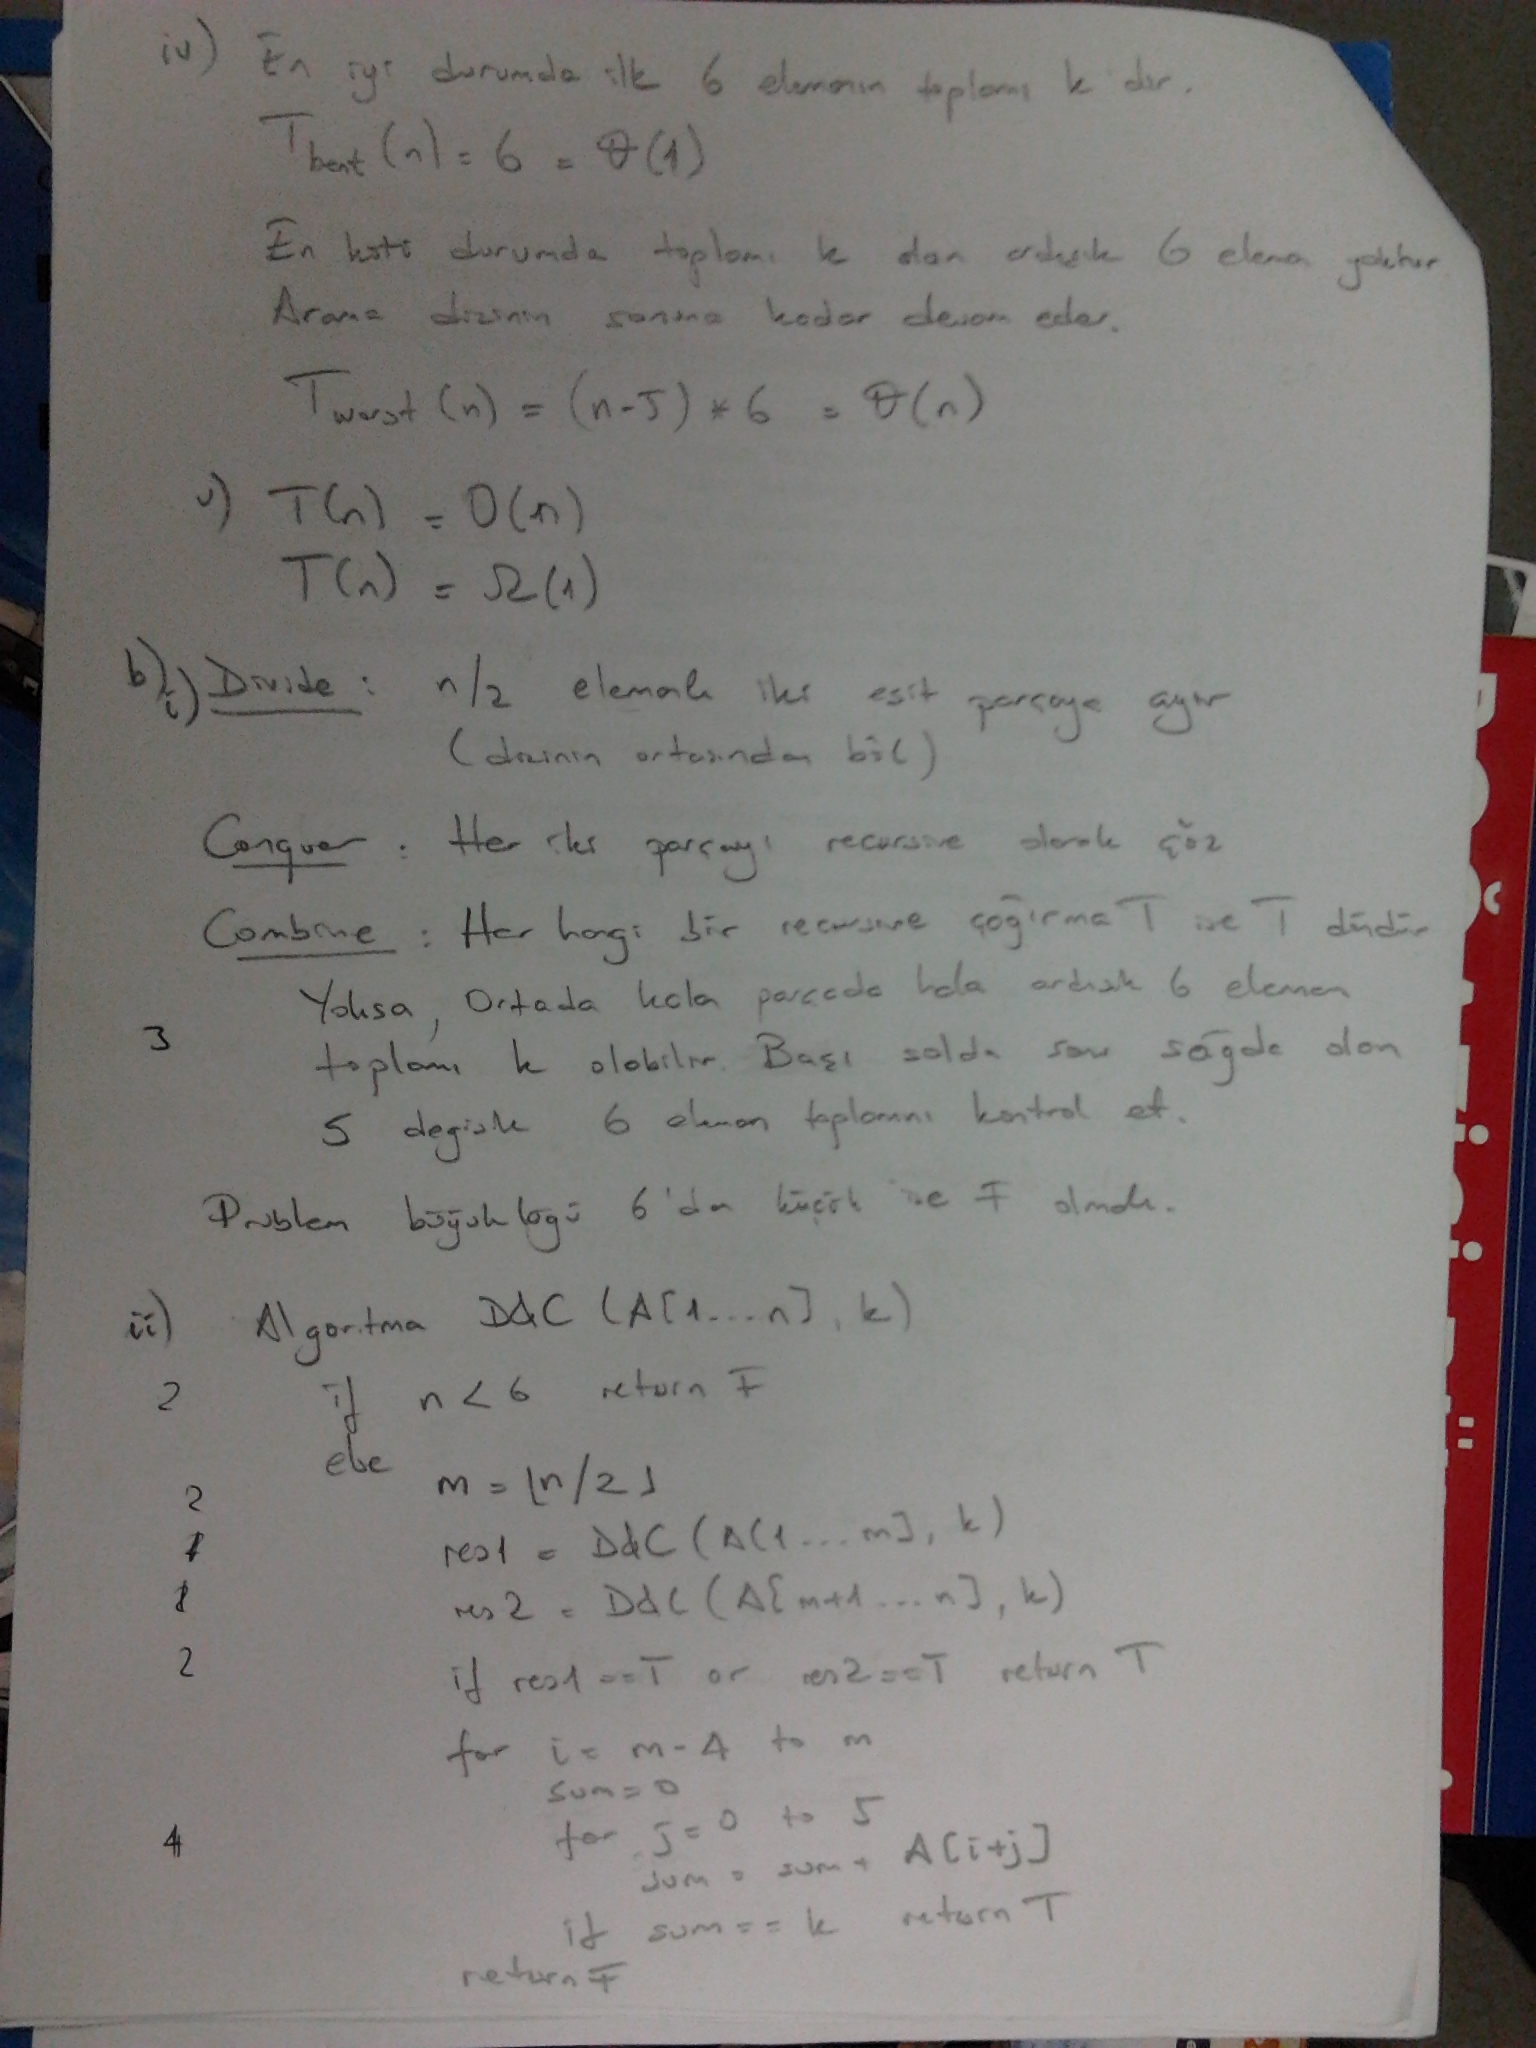 iv) En iyi durumda ilk 6 elemanın toplamı k dır.
T best (n) = 6 = θ(1)
En kötü durumda toplamı k olan ardışık 6 eleman yoktur
Arama dizinin sonuna kadar devam eder.
T worst (n) = (n-5) * 6 = θ(n)
v) T(n) = O(n)
T(n) = Ω(1)
b) i) Divide : n/2 elemanlı iki eşit parçaya ayır
(dizinin ortasından böl)
Conquer : Her iki parçayı recursive olarak çöz
Combine : Her hangi bir recursive çağırma T ise T döndür
Yoksa, Ortada kalan parçada hala ardışık 6 eleman
3 toplamı k olabilir. Başı solda sonu sağda olan
5 değişik 6 eleman toplamını kontrol et.
Problem büyüklüğü 6'dan küçük ise F olmalı.
ii) Algoritma D&C (A[1...n], k)
2 if n < 6 return F
else
2 m = ⌊n/2⌋
1 res1 = D&C (A[1...m], k)
1 res2 = D&C (A[m+1...n], k)
2 if res1 == T or res2 == T return T
for i = m-4 to m
sum = 0
for j = 0 to 5
4 sum = sum + A[i+j]
if sum == k return T
return F